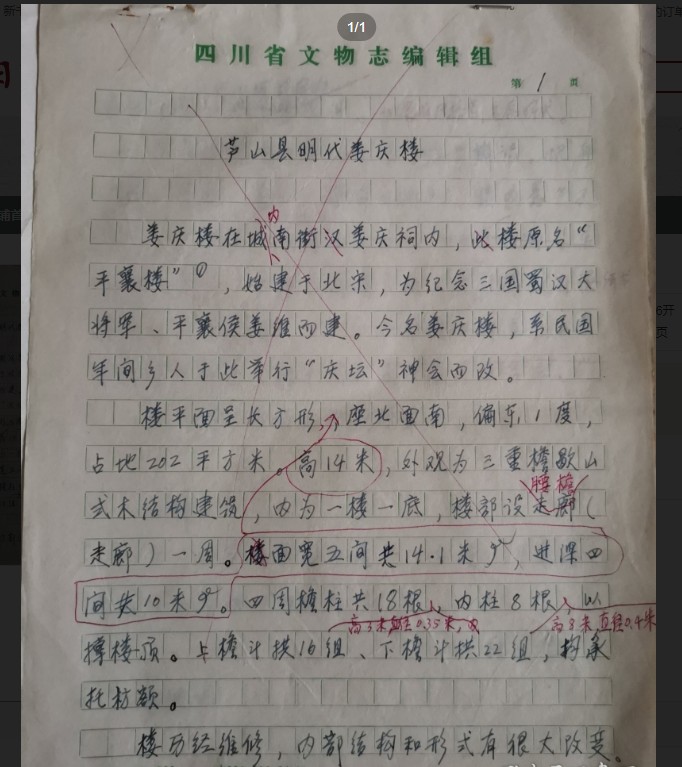 1/1
四川省文物志编辑组
第 1 页
芦山县明代姜庆楼
姜庆楼在城内南街汉姜庆祠内，此楼原名“
平襄楼”①，始建于北宋，为纪念三国蜀汉大
将军、平襄侯姜维而建。今名姜庆楼，系民国
年间乡人于此举行“庆坛”神会而改。
楼平面呈长方形，座北面南，偏东1度，
占地202平方米。高14米，外观为三重檐歇山
式木结构建筑，内为一楼一底，楼部设走廊（
腰檐
走廊）一周。楼面宽五间共14.1米，进深四
间共10米。四周檐柱共18根，内柱8根，以
高3米直径0.35米，内
高8米直径0.4米
撑楼顶。上檐斗拱16组、下檐斗拱22组，构承
托枋额。
楼历经维修，内部结构和形式有很大改变。